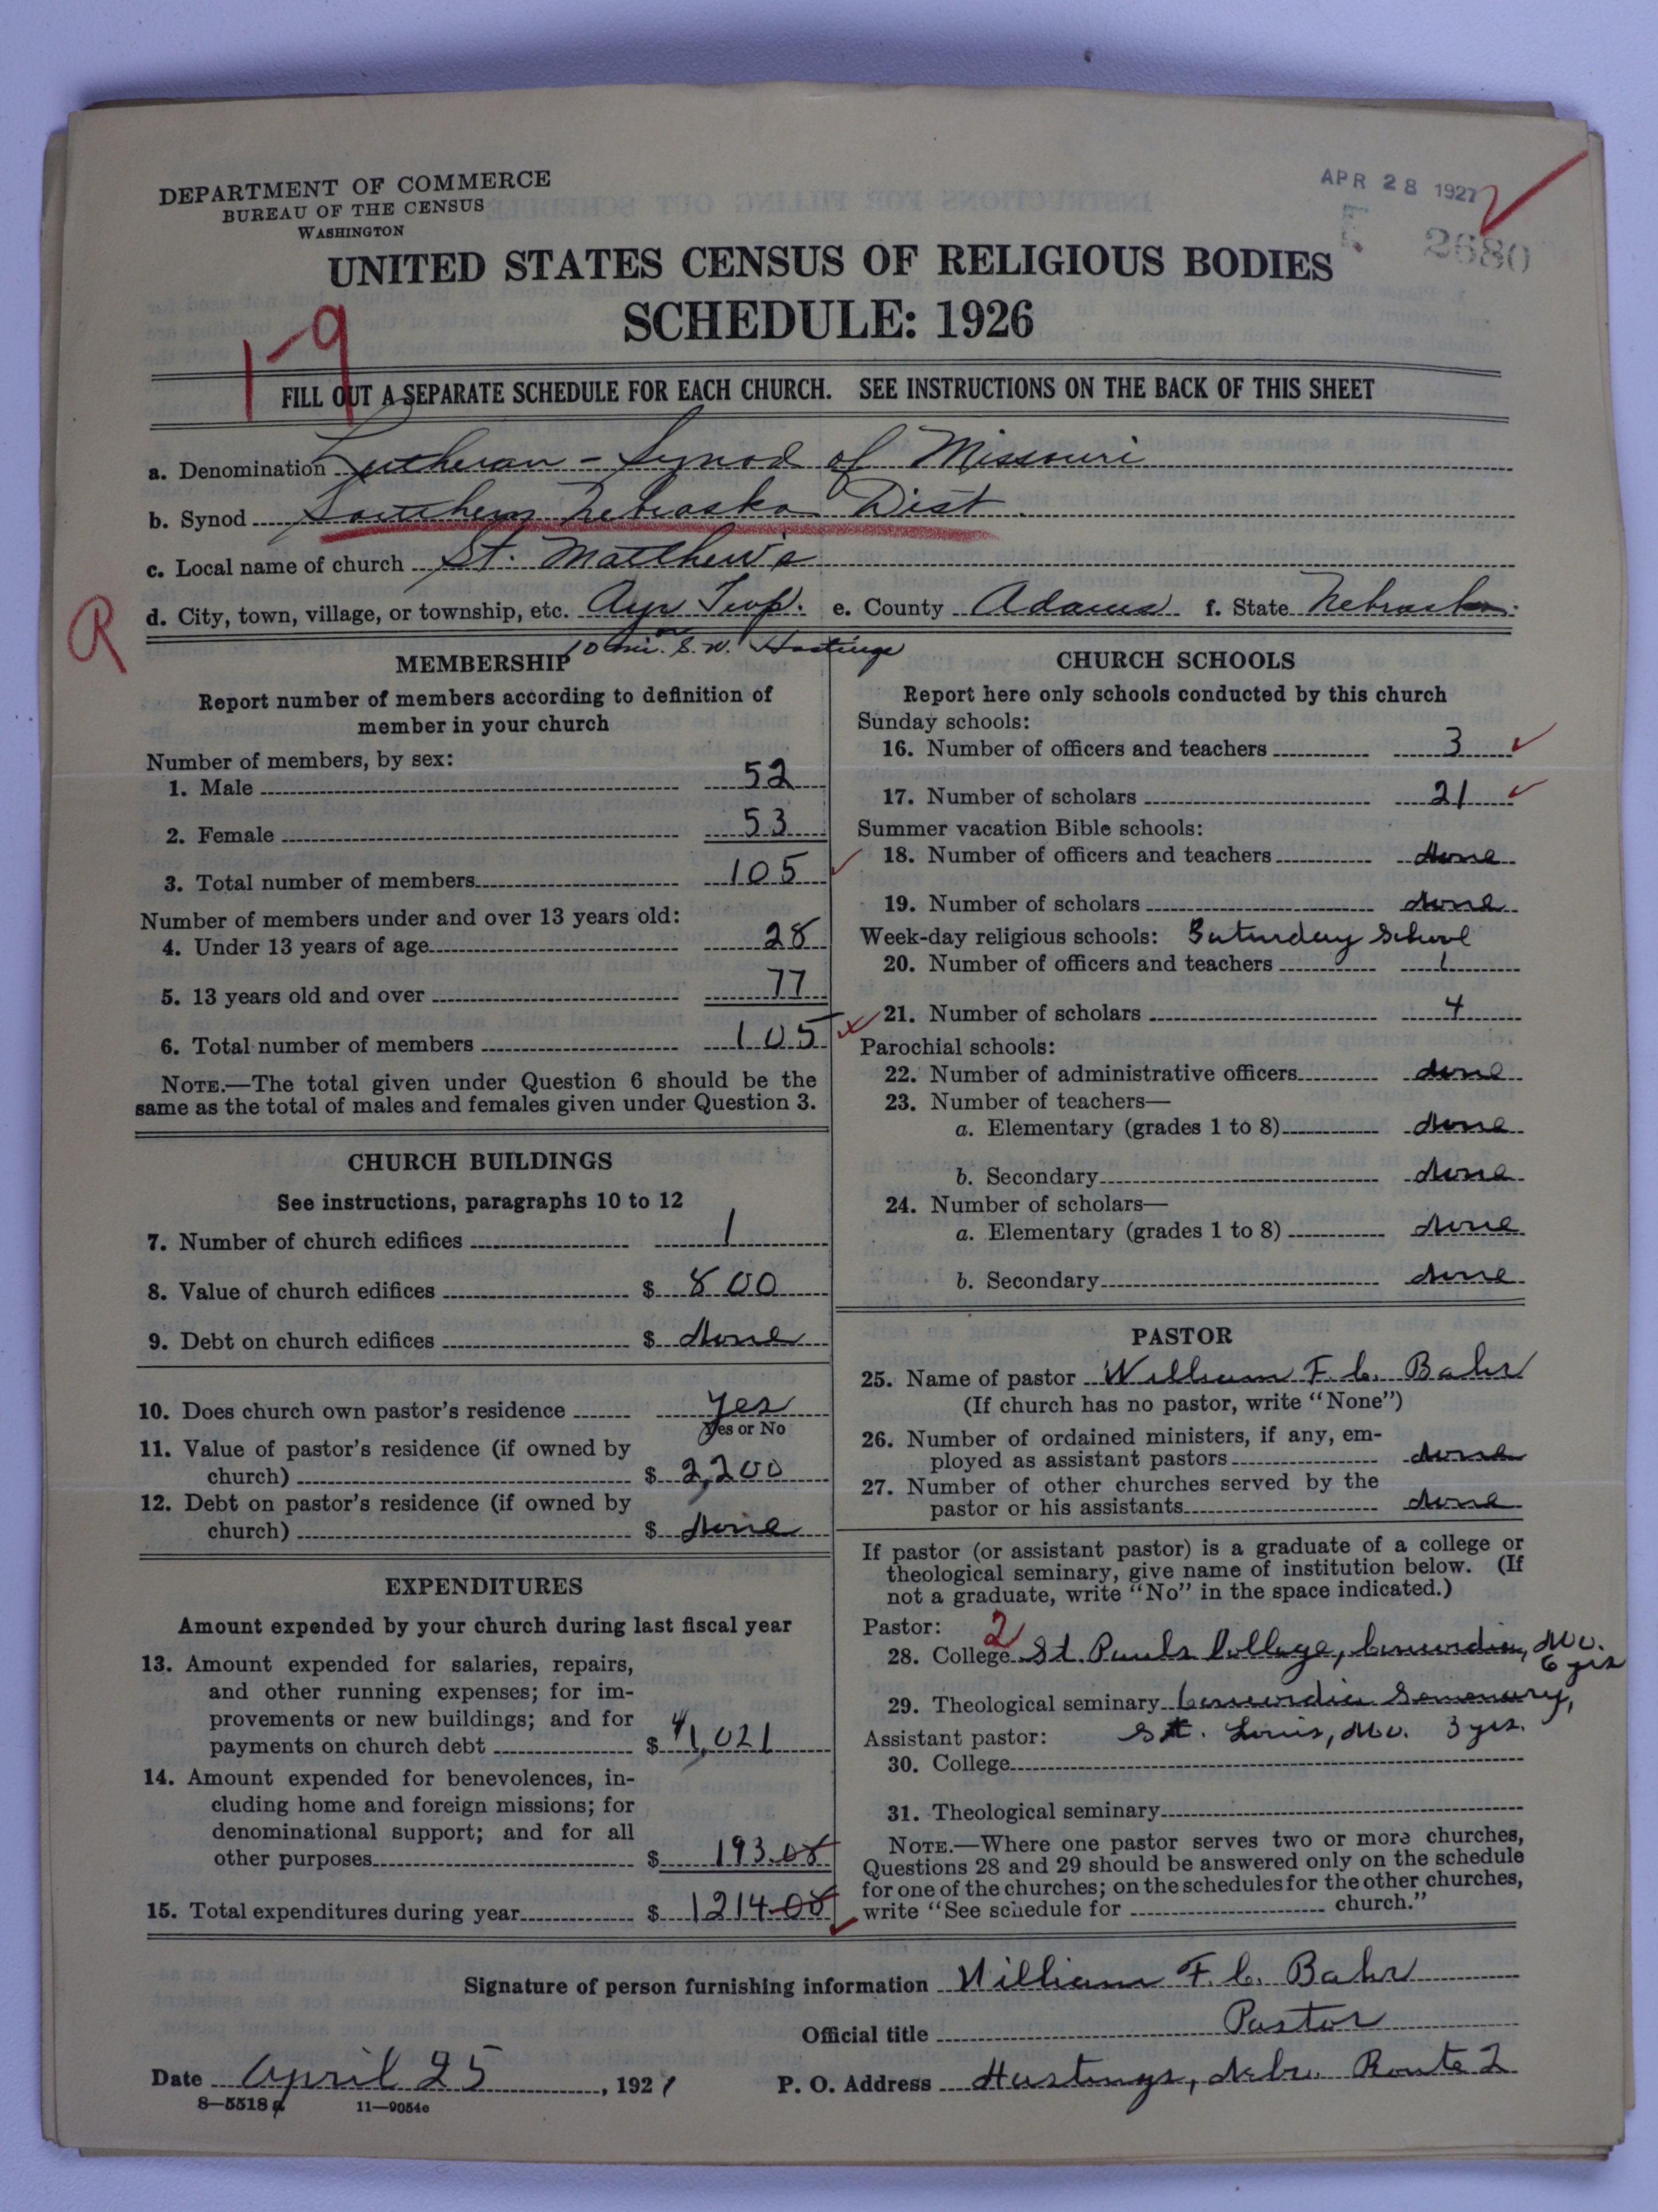 DEPARTMENT OF COMMERCE
BUREAU OF THE CENSUS
WASHINGTON
APR 28 1927
2680
UNITED STATES CENSUS OF RELIGIOUS BODIES
SCHEDULE: 1926
1-9
FILL OUT A SEPARATE SCHEDULE FOR EACH CHURCH. SEE INSTRUCTIONS ON THE BACK OF THIS SHEET
a. Denomination Lutheran - Synod of Missouri
b. Synod Southern Nebraska Dist.
c. Local name of church St. Matthew's
d. City, town, village, or township, etc. Ayr Twp. e. County Adams f. State Nebraska.
R
10 mi. S.W. Hastings
MEMBERSHIP
Report number of members according to definition of
member in your church
Number of members, by sex:
1. Male 52
2. Female 53
3. Total number of members 105
Number of members under and over 13 years old:
4. Under 13 years of age 28
5. 13 years old and over 77
6. Total number of members 105
NOTE.—The total given under Question 6 should be the
same as the total of males and females given under Question 3.
CHURCH BUILDINGS
See instructions, paragraphs 10 to 12
7. Number of church edifices 1
8. Value of church edifices $ 800
9. Debt on church edifices $ None
10. Does church own pastor's residence Yes
Yes or No
11. Value of pastor's residence (if owned by
church) $ 2,200
12. Debt on pastor's residence (if owned by
church) $ None
EXPENDITURES
Amount expended by your church during last fiscal year
13. Amount expended for salaries, repairs,
and other running expenses; for im-
provements or new buildings; and for
payments on church debt $ 1,021
14. Amount expended for benevolences, in-
cluding home and foreign missions; for
denominational support; and for all
other purposes $ 193.08
15. Total expenditures during year $ 1214.08
CHURCH SCHOOLS
Report here only schools conducted by this church
Sunday schools:
16. Number of officers and teachers 3
17. Number of scholars 21
Summer vacation Bible schools:
18. Number of officers and teachers None
19. Number of scholars None
Week-day religious schools: Saturday School
20. Number of officers and teachers 1
21. Number of scholars 4
Parochial schools:
22. Number of administrative officers None
23. Number of teachers—
a. Elementary (grades 1 to 8) None
b. Secondary None
24. Number of scholars—
a. Elementary (grades 1 to 8) None
b. Secondary None
PASTOR
25. Name of pastor William F. C. Bahr
(If church has no pastor, write "None")
26. Number of ordained ministers, if any, em-
ployed as assistant pastors None
27. Number of other churches served by the
pastor or his assistants None
If pastor (or assistant pastor) is a graduate of a college or
theological seminary, give name of institution below. (If
not a graduate, write "No" in the space indicated.)
Pastor: 2
28. College St. Pauls College, Concordia, Mo.
6 yrs
29. Theological seminary Concordia Semenary,
Assistant pastor: St. Louis, Mo. 3 yrs.
30. College
31. Theological seminary
NOTE.—Where one pastor serves two or more churches,
Questions 28 and 29 should be answered only on the schedule
for one of the churches; on the schedules for the other churches,
write "See schedule for church."
Signature of person furnishing information William F. C. Bahr
Official title Pastor
Date April 25, 1927 P. O. Address Hastings, Nebr. Route 2
8—5518a 11—9054c